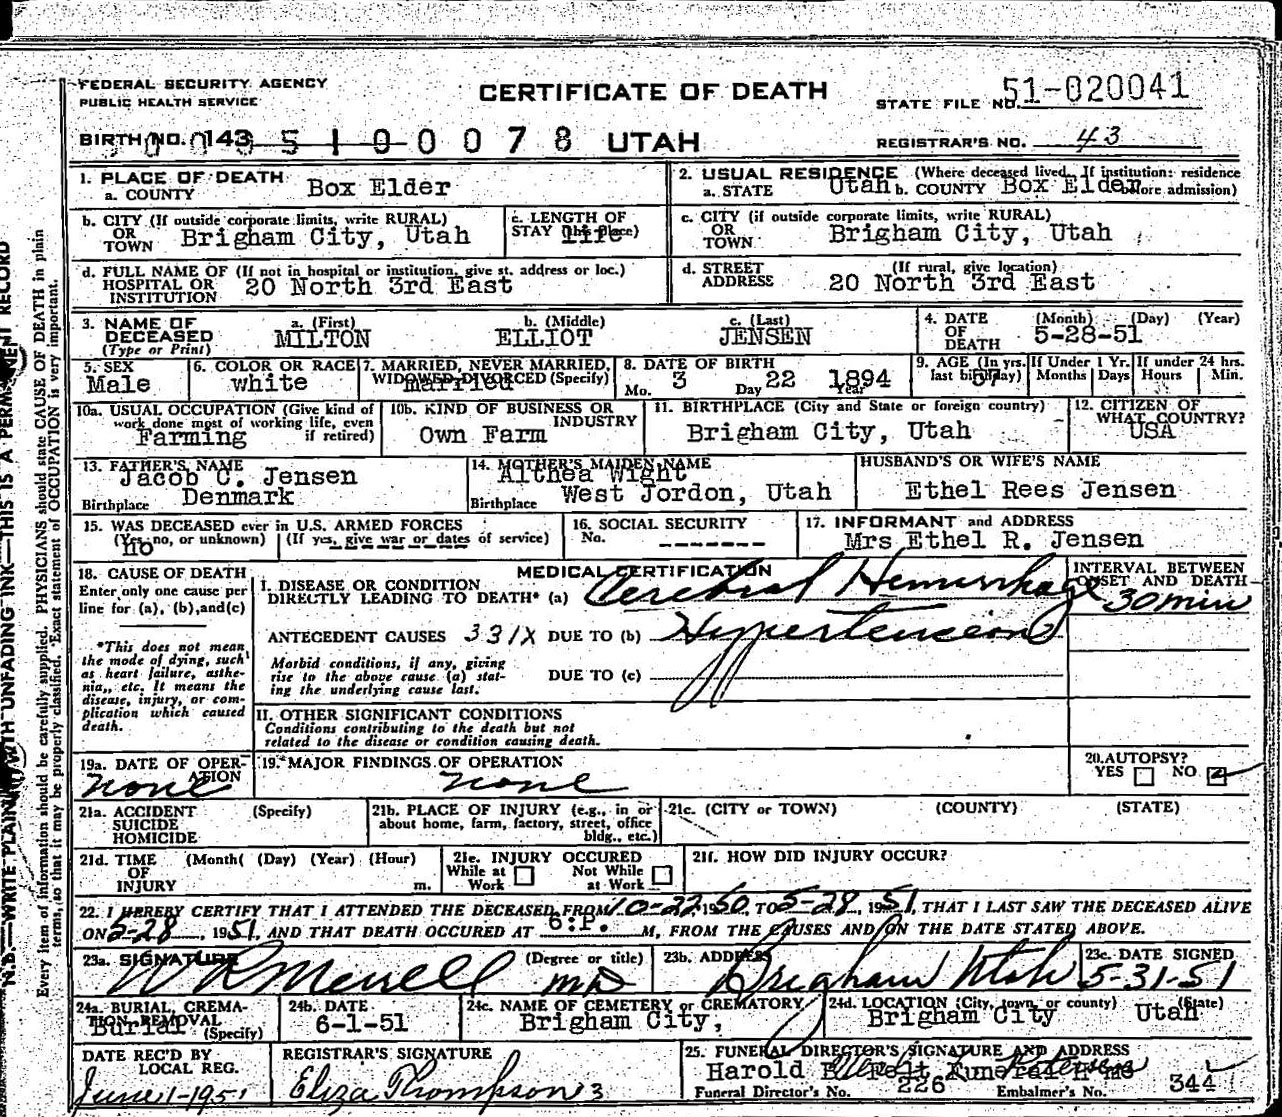 FEDERAL SECURITY AGENCY
PUBLIC HEALTH SERVICE
CERTIFICATE OF DEATH
STATE FILE NO. 51-020041
BIRTH NO. 143 5 1 0 0 0 7 8 UTAH
REGISTRAR'S NO. 43
1. PLACE OF DEATH
a. COUNTY Box Elder
2. USUAL RESIDENCE (Where deceased lived. If institution: residence before admission)
a. STATE Utah b. COUNTY Box Elder
b. CITY (If outside corporate limits, write RURAL)
OR TOWN Brigham City, Utah
c. LENGTH OF STAY (in this place) life
c. CITY (if outside corporate limits, write RURAL)
OR TOWN Brigham City, Utah
d. FULL NAME OF (If not in hospital or institution, give st. address or loc.)
HOSPITAL OR INSTITUTION 20 North 3rd East
d. STREET ADDRESS (If rural, give location)
20 North 3rd East
3. NAME OF DECEASED (Type or Print)
a. (First) MILTON b. (Middle) ELLIOT c. (Last) JENSEN
4. DATE OF DEATH (Month) (Day) (Year)
5-28-51
5. SEX Male
6. COLOR OR RACE white
7. MARRIED, NEVER MARRIED, WIDOWED, DIVORCED (Specify) married
8. DATE OF BIRTH
Mo. 3 Day 22 Year 1894
9. AGE (In yrs. last birthday) 57
If Under 1 Yr. Months Days
If under 24 hrs. Hours Min.
10a. USUAL OCCUPATION (Give kind of work done most of working life, even if retired) Farming
10b. KIND OF BUSINESS OR INDUSTRY Own Farm
11. BIRTHPLACE (City and State or foreign country)
Brigham City, Utah
12. CITIZEN OF WHAT COUNTRY? USA
13. FATHER'S NAME Jacob C. Jensen
Birthplace Denmark
14. MOTHER'S MAIDEN NAME Althea Wight
Birthplace West Jordon, Utah
HUSBAND'S OR WIFE'S NAME
Ethel Rees Jensen
15. WAS DECEASED ever in U.S. ARMED FORCES
(Yes, no, or unknown) no (If yes, give war or dates of service)
16. SOCIAL SECURITY No. -------
17. INFORMANT and ADDRESS
Mrs Ethel R. Jensen
18. CAUSE OF DEATH
Enter only one cause per line for (a), (b), and (c)
*This does not mean the mode of dying, such as heart failure, asthenia, etc. It means the disease, injury, or complication which caused death.
MEDICAL CERTIFICATION
I. DISEASE OR CONDITION DIRECTLY LEADING TO DEATH* (a) Cerebral Hemurrhage
INTERVAL BETWEEN ONSET AND DEATH
30 min
ANTECEDENT CAUSES 331X DUE TO (b) Hypertension
Morbid conditions, if any, giving rise to the above cause (a) stating the underlying cause last.
DUE TO (c)
II. OTHER SIGNIFICANT CONDITIONS
Conditions contributing to the death but not related to the disease or condition causing death.
19a. DATE OF OPERATION none
19. MAJOR FINDINGS OF OPERATION none
20. AUTOPSY?
YES NO
21a. ACCIDENT SUICIDE HOMICIDE (Specify)
21b. PLACE OF INJURY (e.g., in or about home, farm, factory, street, office bldg., etc.)
21c. (CITY or TOWN) (COUNTY) (STATE)
21d. TIME OF INJURY (Month) (Day) (Year) (Hour) m.
21e. INJURY OCCURED
While at Work Not While at Work
21f. HOW DID INJURY OCCUR?
22. I HEREBY CERTIFY THAT I ATTENDED THE DECEASED FROM 10-22, 1950, TO 5-28, 1951, THAT I LAST SAW THE DECEASED ALIVE
ON 5-28, 1951, AND THAT DEATH OCCURED AT 6:P. M, FROM THE CAUSES AND ON THE DATE STATED ABOVE.
23a. SIGNATURE (Degree or title)
W R Merrell MD
23b. ADDRESS Brigham Utah
23c. DATE SIGNED
5-31-51
24a. BURIAL, CREMATION, REMOVAL (Specify) Burial
24b. DATE
6-1-51
24c. NAME OF CEMETERY or CREMATORY
Brigham City,
24d. LOCATION (City, town, or county) (State)
Brigham City Utah
DATE REC'D BY LOCAL REG.
June 1-1951
REGISTRAR'S SIGNATURE
Eliza Thompson 3
25. FUNERAL DIRECTOR'S SIGNATURE AND ADDRESS
Harold B. Felt Funeral Home
Funeral Director's No. 226 Embalmer's No. 344
N.B.—WRITE PLAINLY WITH UNFADING INK—THIS IS A PERMANENT RECORD
Every item of information should be carefully supplied. PHYSICIANS should state CAUSE OF DEATH in plain
terms, so that it may be properly classified. Exact statement of OCCUPATION is very important.